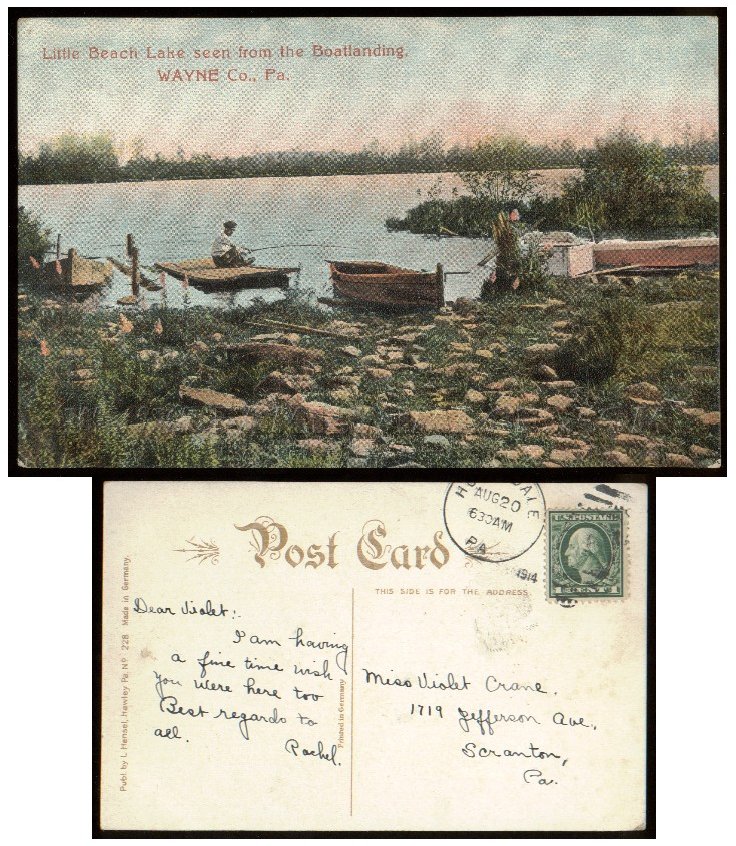 Little Beach Lake seen from the Boatlanding.
WAYNE Co., Pa.
Post Card
AUG 20
630AM
PA.
1914
U.S. POSTAGE
1 CENT 1
THIS SIDE IS FOR THE ADDRESS.
Dear Violet:-
I am having
a fine time wish
you were here too
Best regards to
all.
Rachel.
Miss Violet Crane.
1719 Jefferson Ave.,
Scranton,
Pa.
Publ. by J. Hensel, Hawley Pa. No 228 Made in Germany.
Printed in Germany